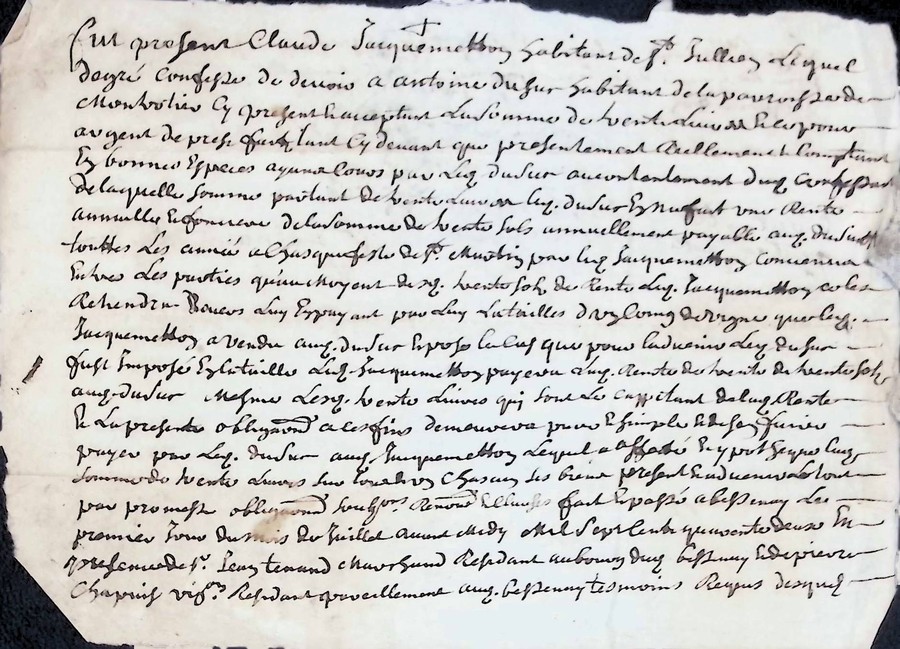 Fut present Claude Jacquemetton habitant de St. Jullien Lequel
degré Confesse de devoir a antoine dusur habitant de la parroisse de
Montrotier Cy present & acceptant La Somme de trente Livres & ce pour
argent de prest faict tant Cy devant que presentement Reellement & Comptant
En bonnes Especes ayant Cours par Led. dusur au contentement dud. Confessant
de laquelle Somme portant de trente Livres led. dusur En a fait une Rente
annuelle & fonciere de la Somme de trente Sols annuellement payable aud. dusur
touttes Les années a Chasque feste de St. Martin par led. Jacquemetton Convenu
Entre Les parties qu'au moyent desd. trente Sols de Rente Led. Jacquemetton
Rehendra Envers Luy En payant par Luy La tailles d'un de vigne que led.
Jacquemetton a vendu aud. dusur Et pose le Cas que pour Led. dusur
fust Imposé En la taille Led. Jacquemetton payera Lad. Rente de trente de trente Sols
aud. dusur Mesme Lesd. trente Livres qui Sont Le Cappital de lad. Rente
Et La presente obligaōn a ces fins demeurera pure & Simple & de
payer par Led. dusur aud. Jacquemetton Lequel a affecté & ypothequé lad.
Somme de trente Livres Sur tous & un Chascun Ses biens present & advenir Le tout
par promesse obligaōn Renonc̄ & Clauses fait & passé a bessenay Le
premier Jour du mois de Juillet avant Midy Mil Sept Cents quarante deux En
presence de Sr. Jean tenand Marchand Residant au bourg dud. bessenay & de pierre
Chapuis vigr. Residant pareillement aud. bessenay tesmoins Requis desquels